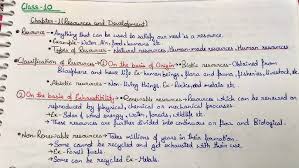 Class-10
Chapter-1 (Resources and Development)
Resource → Anything that can be used to satisfy our need is a resource.
→ Example - Water, Air, food, humans etc.
→ Types of Resources - Natural resources, Human-made resources, Human resources
Classification of Resources → ① On the basis of Origin → Biotic resources - Obtained from
Biosphere and have life Ex - human beings, flora and fauna, fisheries, livestock, etc
→ Abiotic resources - Non-living things. Ex - Rocks, metals etc.
② On the basis of Exhaustibility → Renewable resources - Resources which can be renewed or
reproduced by physical, chemical or mechanical processes.
→ Ex - Solar & wind energy, water, forests, wildlife etc.
→ These resources can further divided into continuous or flow and Biological.
→ Non-Renewable resources → Takes millions of years in their formation.
→ Some cannot be recycled and get exhausted with their use.
Ex - Fossil fuels.
→ Some can be recycled Ex - Metals.